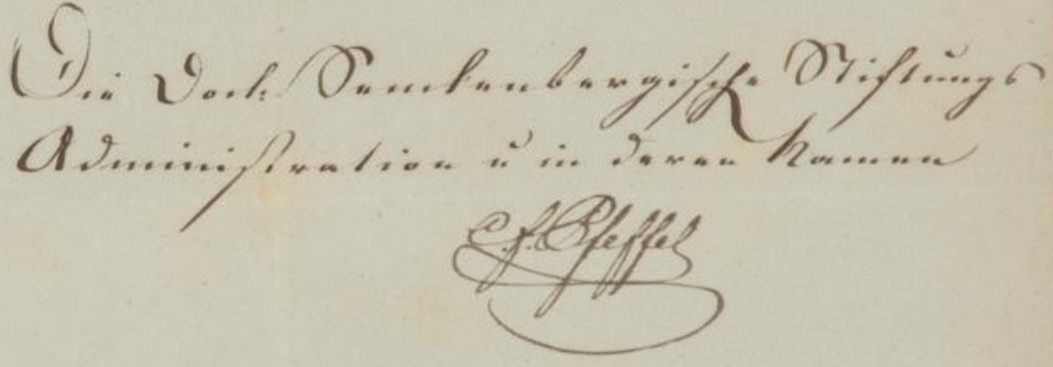 Die Doct: Senckenbergische Stiftungs
Administration u in deren Namen
C. F. Pfeffel